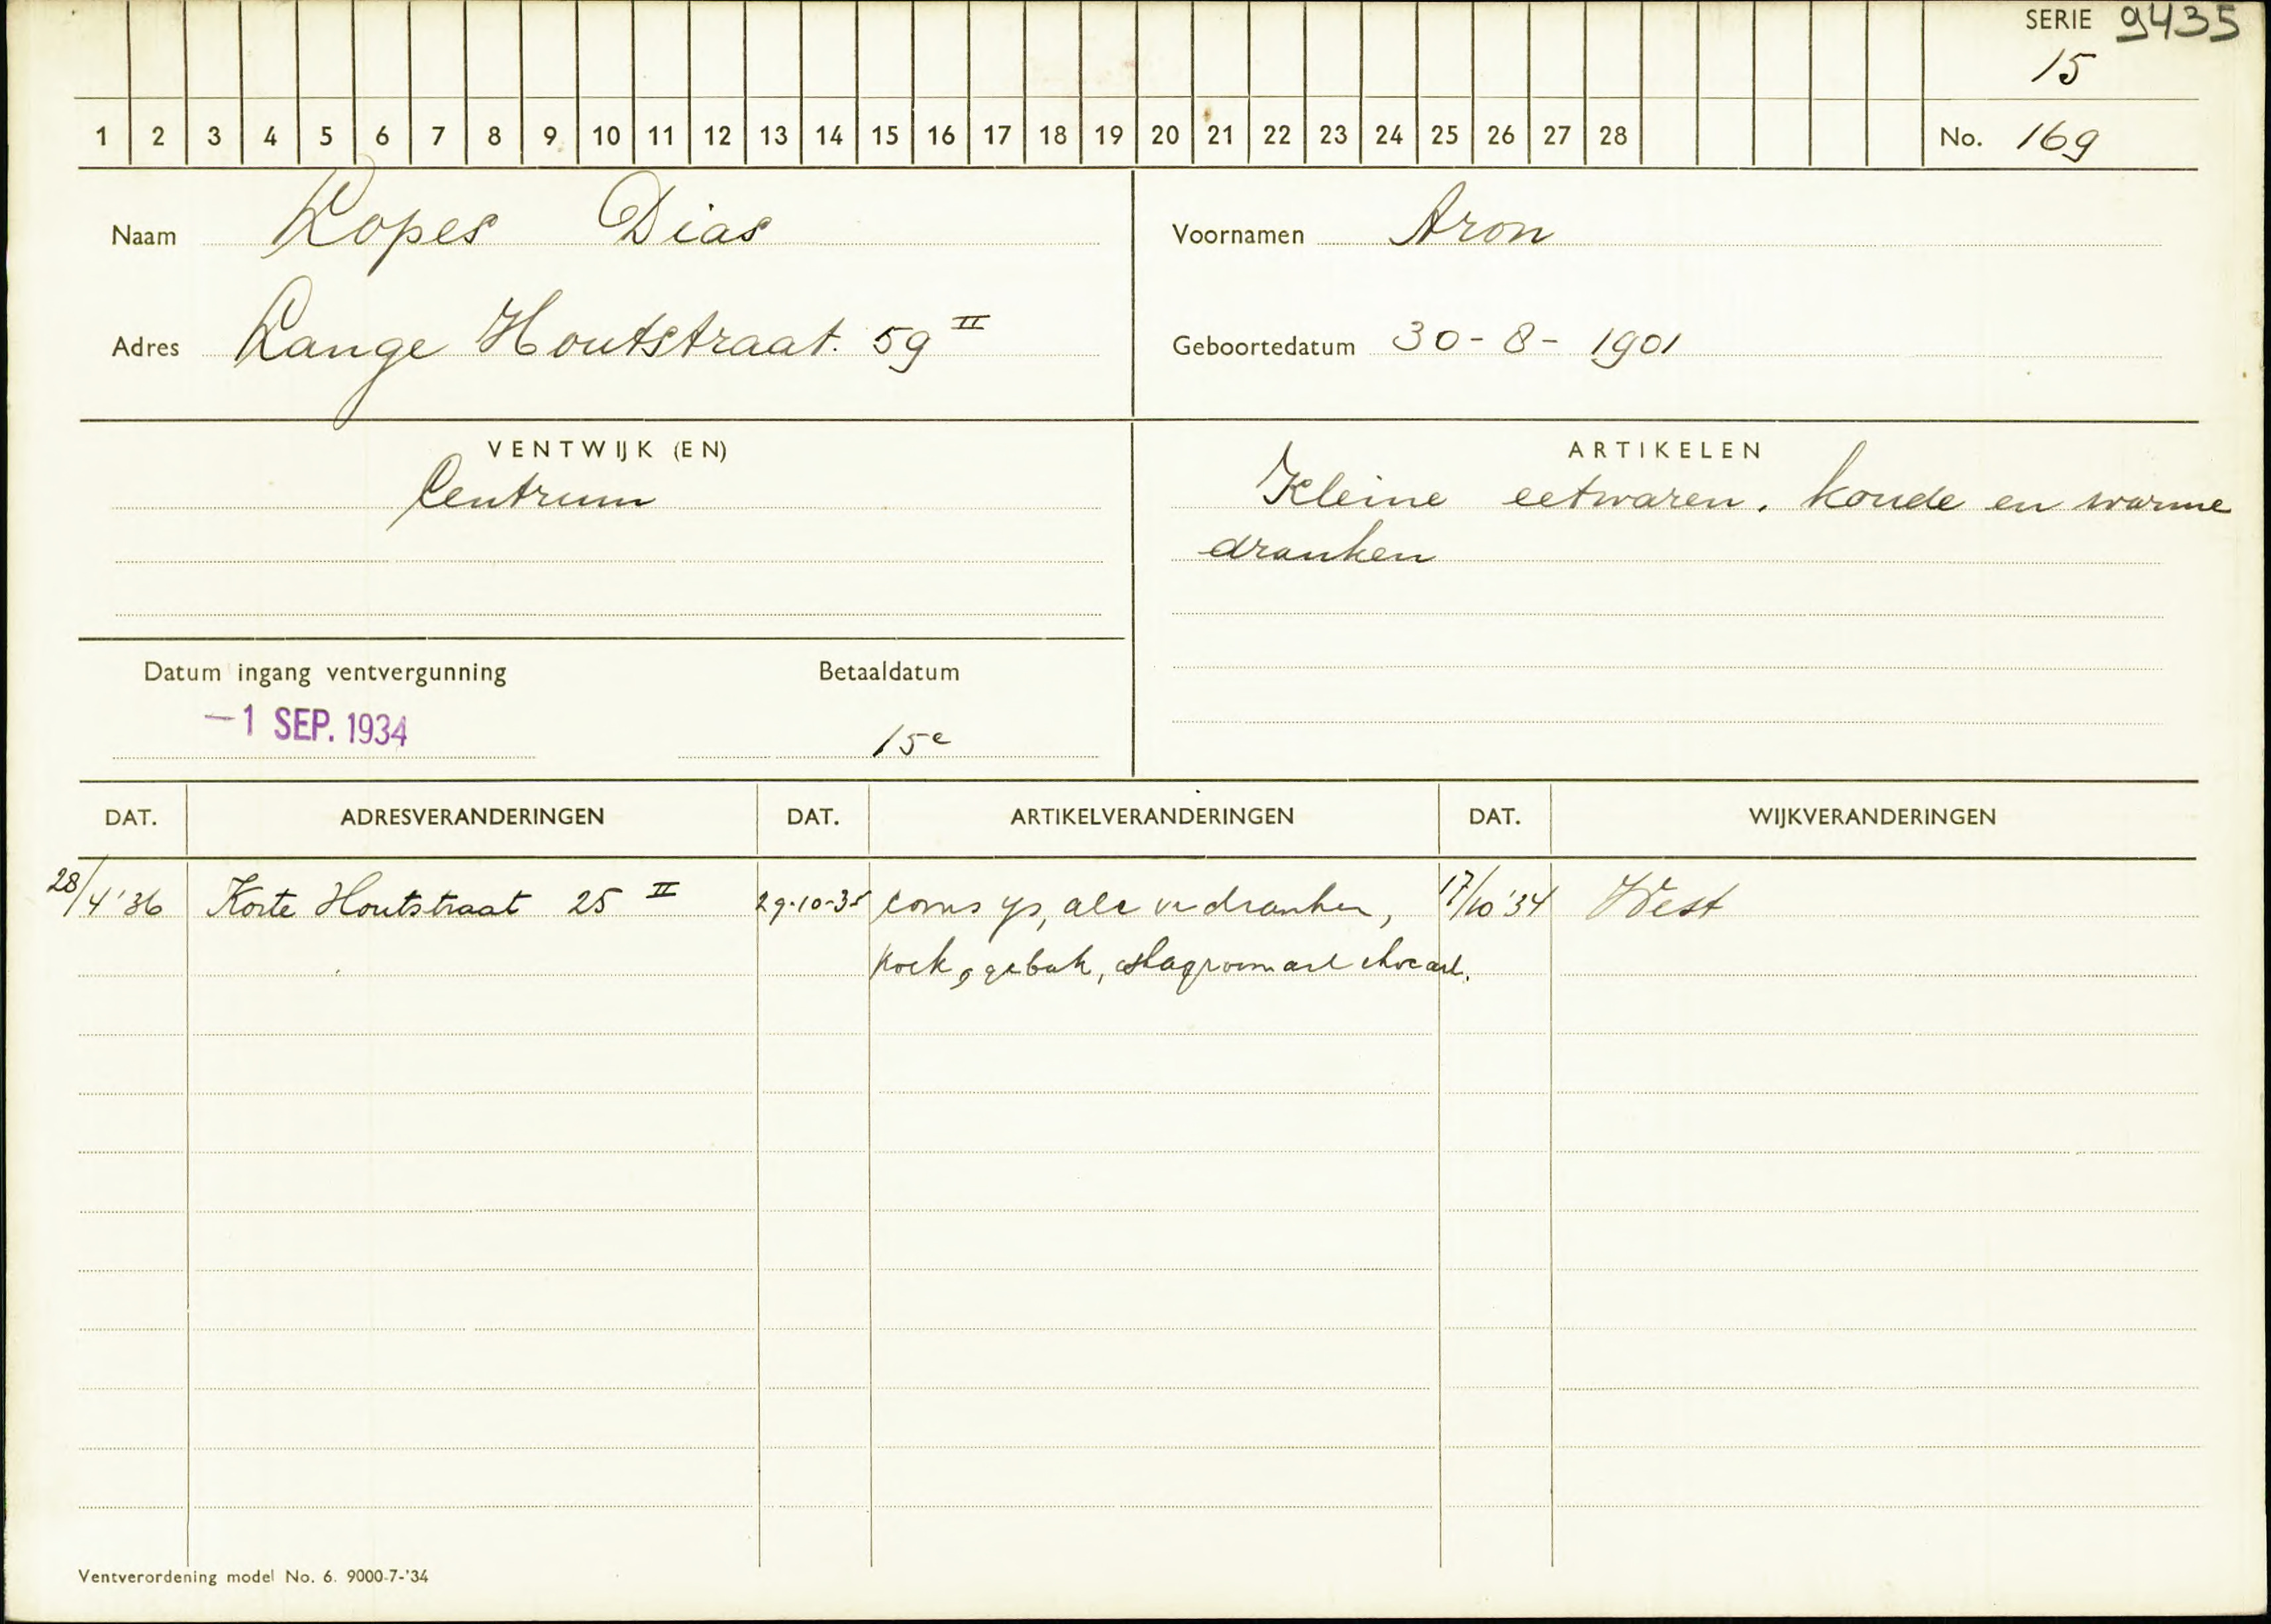 SERIE 9435
15
1 2 3 4 5 6 7 8 9 10 11 12 13 14 15 16 17 18 19 20 21 22 23 24 25 26 27 28 No. 169
Naam Lopes Dias Voornamen Aron
Adres Lange Houtstraat. 59 II Geboortedatum 30-8-1901
VENTWIJK (EN) ARTIKELEN
Centrum Kleine eetwaren, koude en warme
dranken
Datum ingang ventvergunning Betaaldatum
-1 SEP. 1934 15e
DAT. ADRESVERANDERINGEN DAT. ARTIKELVERANDERINGEN DAT. WIJKVERANDERINGEN
28/4'36 Korte Houtstraat 25 II 29-10-35 cons ys, alc vr dranken, 17/10'34 West
koek, gebak, slagroom
Ventverordening model No. 6. 9000-7-'34